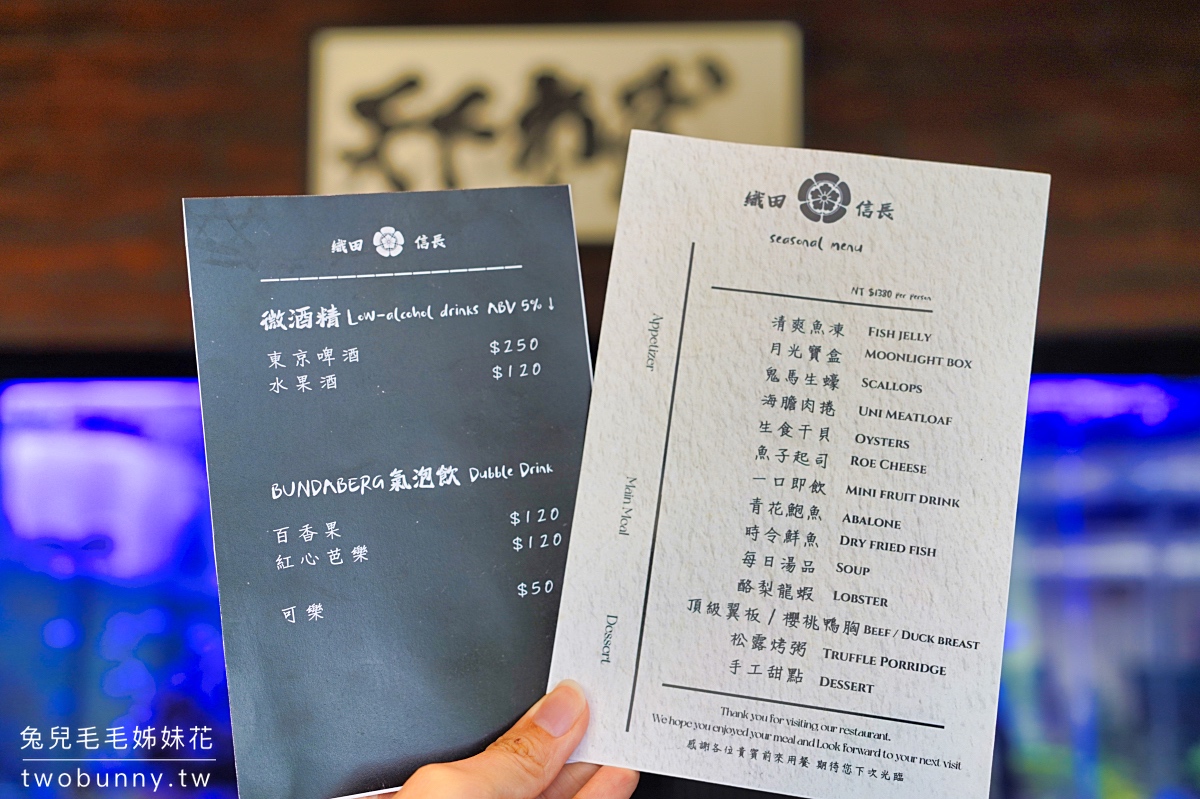 織田 信長
微酒精 Low-alcohol drinks ABV 5%↓
東京啤酒 $250
水果酒 $120
BUNDABERG 氣泡飲 Dubble Drink
百香果 $120
紅心芭樂 $120
可樂 $50
織田 信長
seasonal menu
NT $1380 Per person
Appetizer
Main Meal
Dessert
清爽魚凍 FISH JELLY
月光寶盒 MOONLIGHT BOX
鬼馬生蠔 SCALLOPS
海膽肉捲 UNI MEATLOAF
生食干貝 OYSTERS
魚子起司 ROE CHEESE
一口即飲 MINI FRUIT DRINK
青花鮑魚 ABALONE
時令鮮魚 DRY FRIED FISH
每日湯品 SOUP
酪梨龍蝦 LOBSTER
頂級翼板 / 櫻桃鴨胸 BEEF / DUCK BREAST
松露烤粥 TRUFFLE PORRIDGE
手工甜點 DESSERT
Thank you for visiting our restaurant.
We hope you enjoyed your meal and Look forward to your next visit
感謝各位貴賓前來用餐 期待您下次光臨
兔兒毛毛姊妹花
twobunny.tw